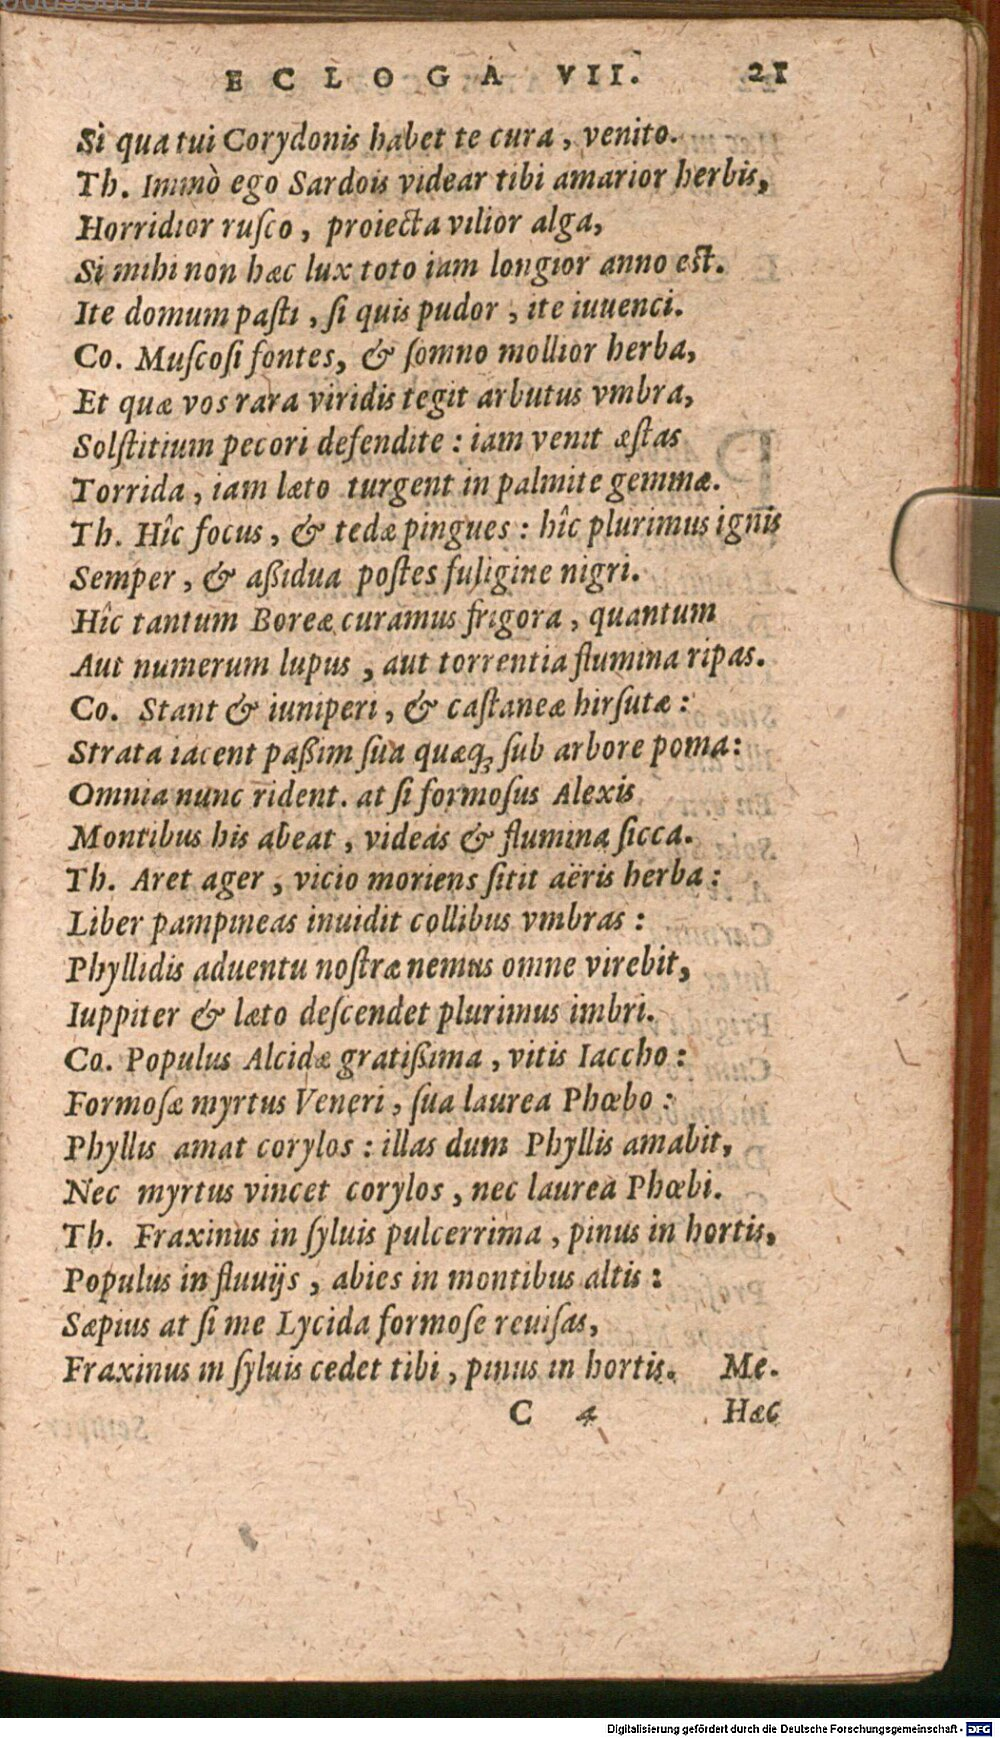 ECLOGA VII. 21
Si qua tui Corydonis habet te cura, venito.
Th. Immò ego Sardois videar tibi amarior herbis,
Horridior ruſco, proiecta vilior alga,
Si mihi non hæc lux toto iam longior anno eſt.
Ite domum paſti, ſi quis pudor, ite iuuenci.
Co. Muſcoſi fontes, & ſomno mollior herba,
Et quæ vos rara viridis tegit arbutus vmbra,
Solſtitium pecori defendite: iam venit æſtas
Torrida, iam læto turgent in palmite gemmæ.
Th. Hîc focus, & tedæ pingues: hîc plurimus ignis
Semper, & aßidua poſtes fuligine nigri.
Hîc tantum Boreæ curamus frigora, quantum
Aut numerum lupus, aut torrentia flumina ripas.
Co. Stant & iuniperi, & caſtaneæ hirſutæ:
Strata iacent paßim ſua quæq; ſub arbore poma:
Omnia nunc rident. at ſi formoſus Alexis
Montibus his abeat, videas & flumina ſicca.
Th. Aret ager, vicio moriens ſitit aëris herba:
Liber pampineas inuidit collibus vmbras:
Phyllidis aduentu noſtræ nemus omne virebit,
Iuppiter & læto deſcendet plurimus imbri.
Co. Populus Alcidæ gratißima, vitis Iaccho:
Formoſæ myrtus Veneri, ſua laurea Phœbo:
Phyllis amat corylos: illas dum Phyllis amabit,
Nec myrtus vincet corylos, nec laurea Phœbi.
Th. Fraxinus in ſyluis pulcerrima, pinus in hortis,
Populus in fluuijs, abies in montibus altis:
Sæpius at ſi me Lycida formoſe reuiſas,
Fraxinus in ſyluis cedet tibi, pinus in hortis. Me.
C 4 Hæc
Digitalisierung gefördert durch die Deutsche Forschungsgemeinschaft - DFG